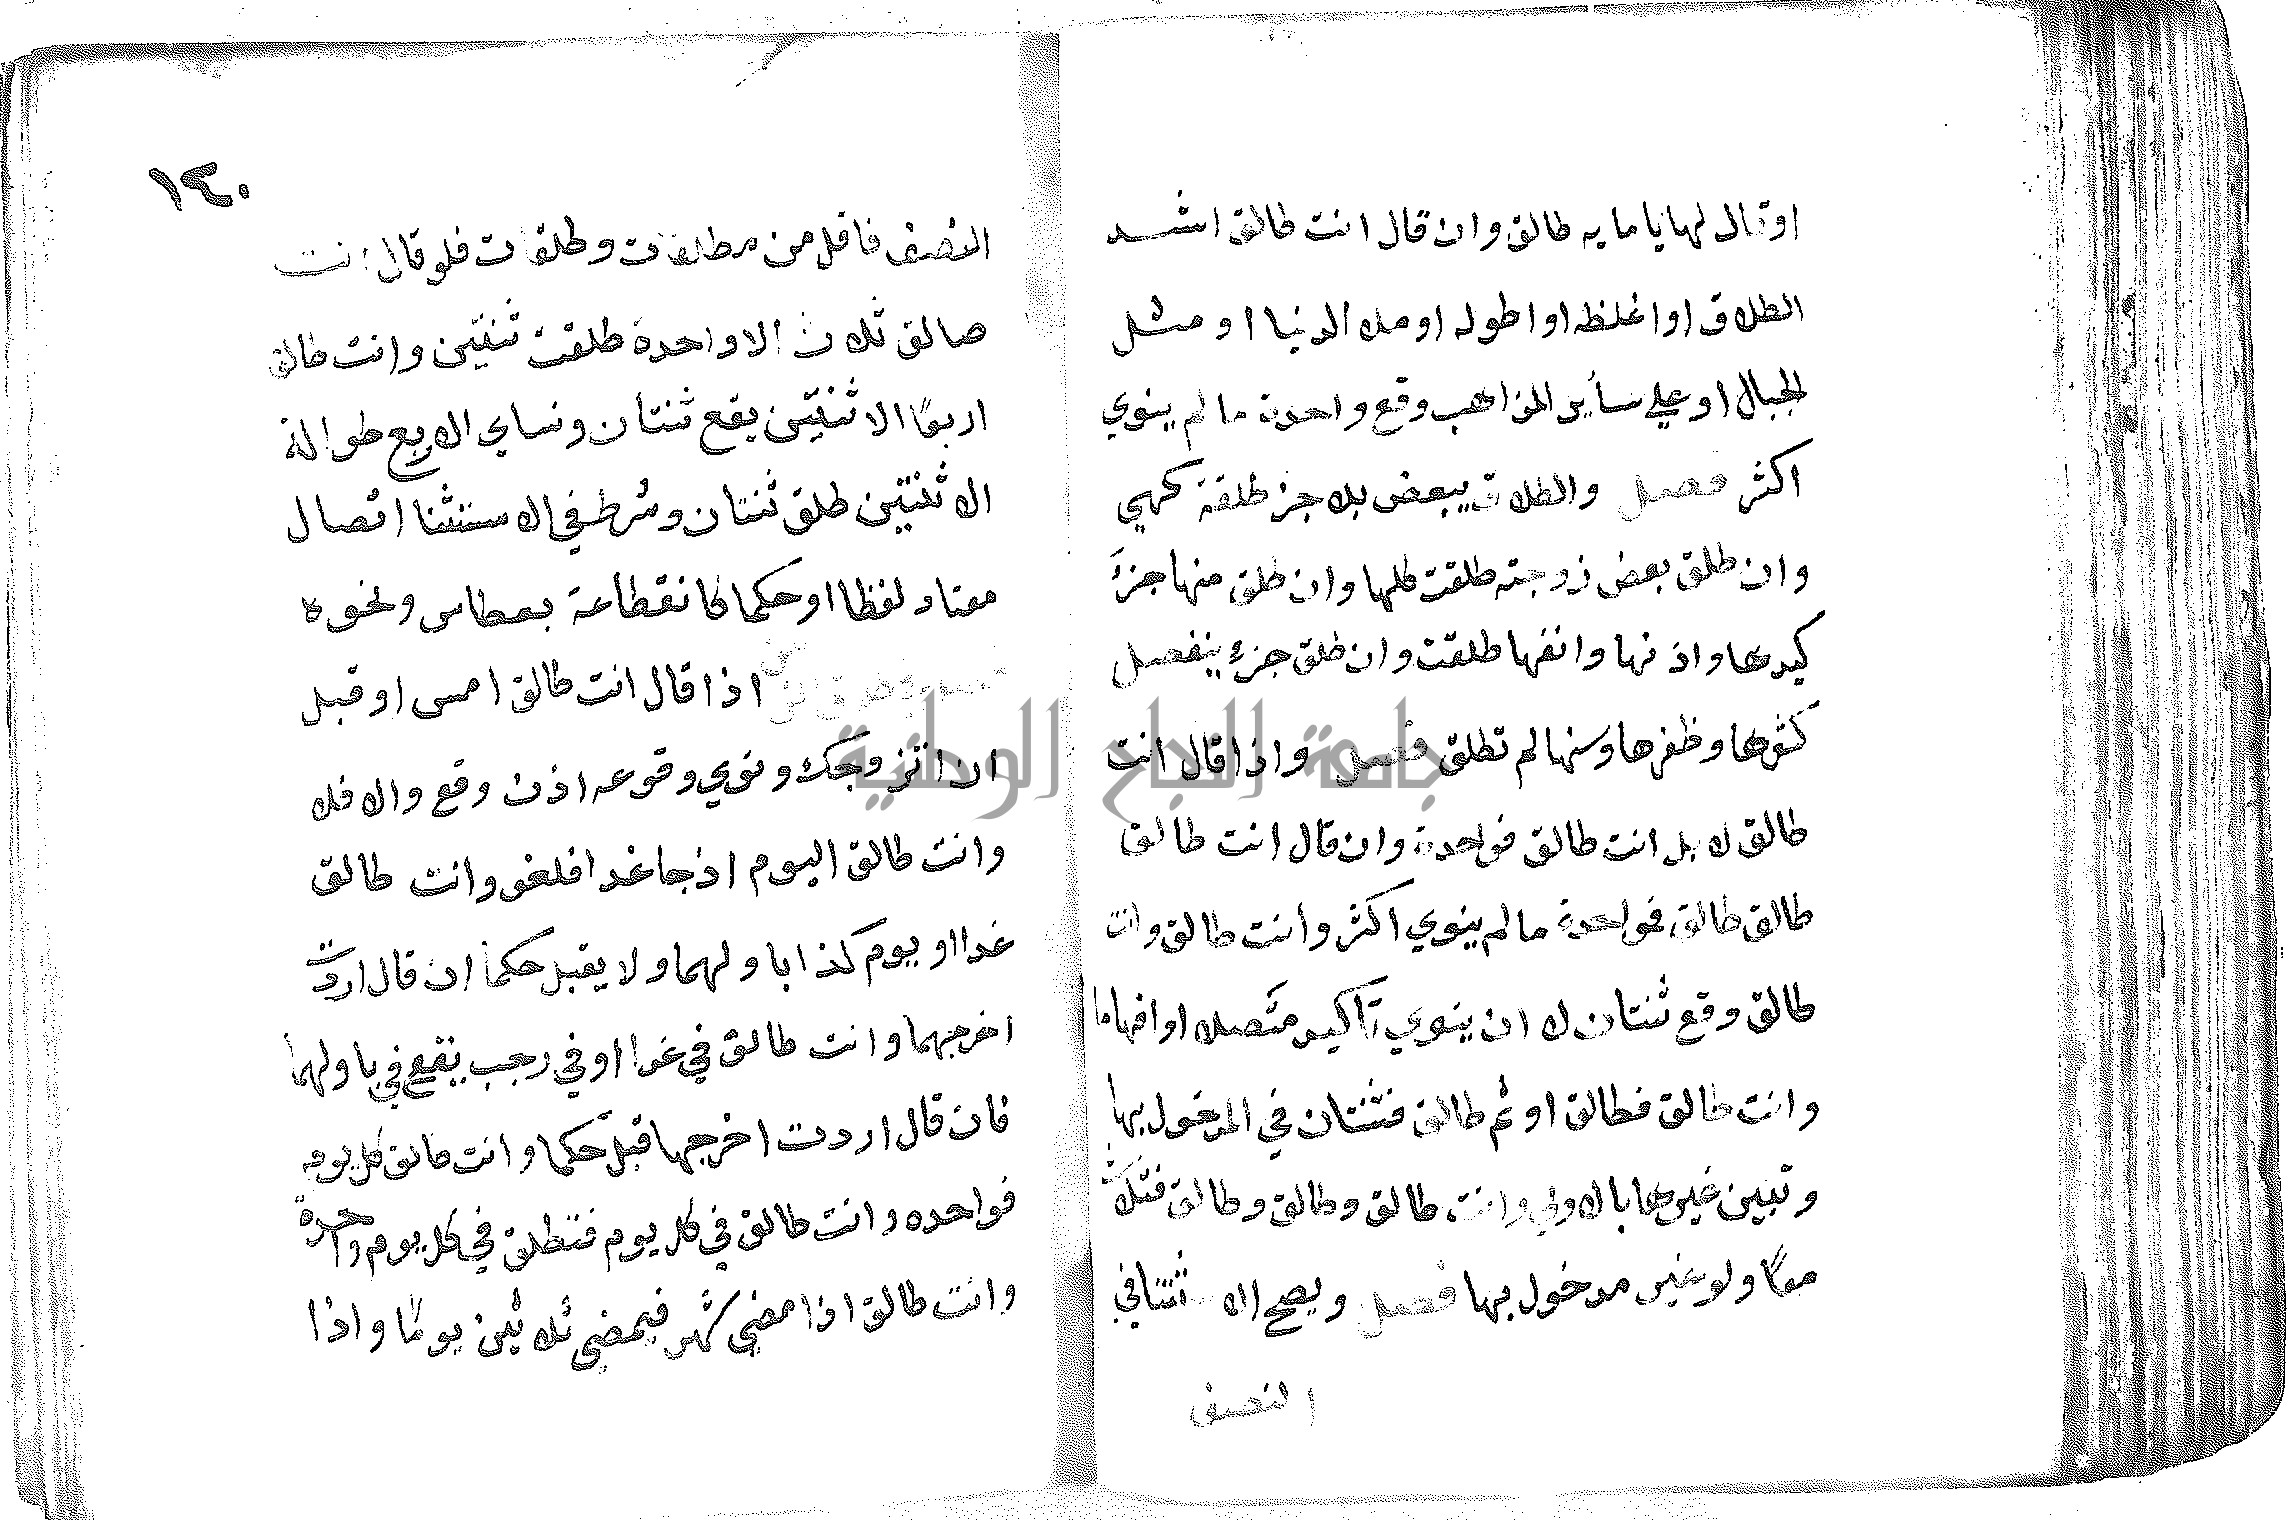 او قال لها يا مايه طالق وان قال انت طالق اشد
الطلاق او اغلظه او اطوله او ملا الدنيا او مثل
الجبال او علي سأير المذاهب وقع واحدة ما لم ينوي
اكثر فصل والطلاق يبعض بلا جزء طلقة كهي
وان طلق بعض زوجته طلقت كلها وان طلق منها جزءً
كيدها واذنها وانفها طلقت وان طلق جزء ينفصل
كشعرها وظفرها وسنها لم تطلق فصل واذا قال انت
طالق لا بل انت طالق فواحدة وان قال انت طالق
طالق طالق فواحدة ما لم ينوي اكثر وأنت طالق وانت
طالق وقع ثنتان لا ان ينوي تأكيد متصلا او افهاما
وانت طالق فطالق او ثم طالق فثنتان في المدخول بها
وتبين غيرها بالاولي وانت طالق وطالق وطالق فثلاث
معًا ولو غير مدخول بها فصل ويصح الا ستثنا في
النصف
١٢٠
النصف فاقل من مطلقات وطلقات فلو قال انت
طالق ثلاث الا واحدة طلقت ثنتين وانت طالق
اربعًا الا ثنتين يقع ثنتان ونساي الاربع طوالق
الا ثنتين طلق ثنتان وشرط في الا ستثنا اتصال
معتاد لفظا او حكما كانقطاعه بعطاس ونحوه
اذا قال انت طالق امس او قبل
ان اتزوجك ونوي وقوعه اذن وقع والا فلا
وانت طالق اليوم اذ جا غدا فلغو وانت طالق
غدا او يوم كذا باولهما ولا يقبل حكما ان قال اردت
اخرهما وانت طالق في غدا او في رجب يقع في باولهما
فان قال اردت اخرهما قبل حكما وانت طالق كل يوم
فواحده وانت طالق في كل يوم فتطلق في كل يوم واحدة
وانت طالق اذا مضي شهر فيمضي ثلاثين يومًا واذا
جامعة النجاح الوطنية